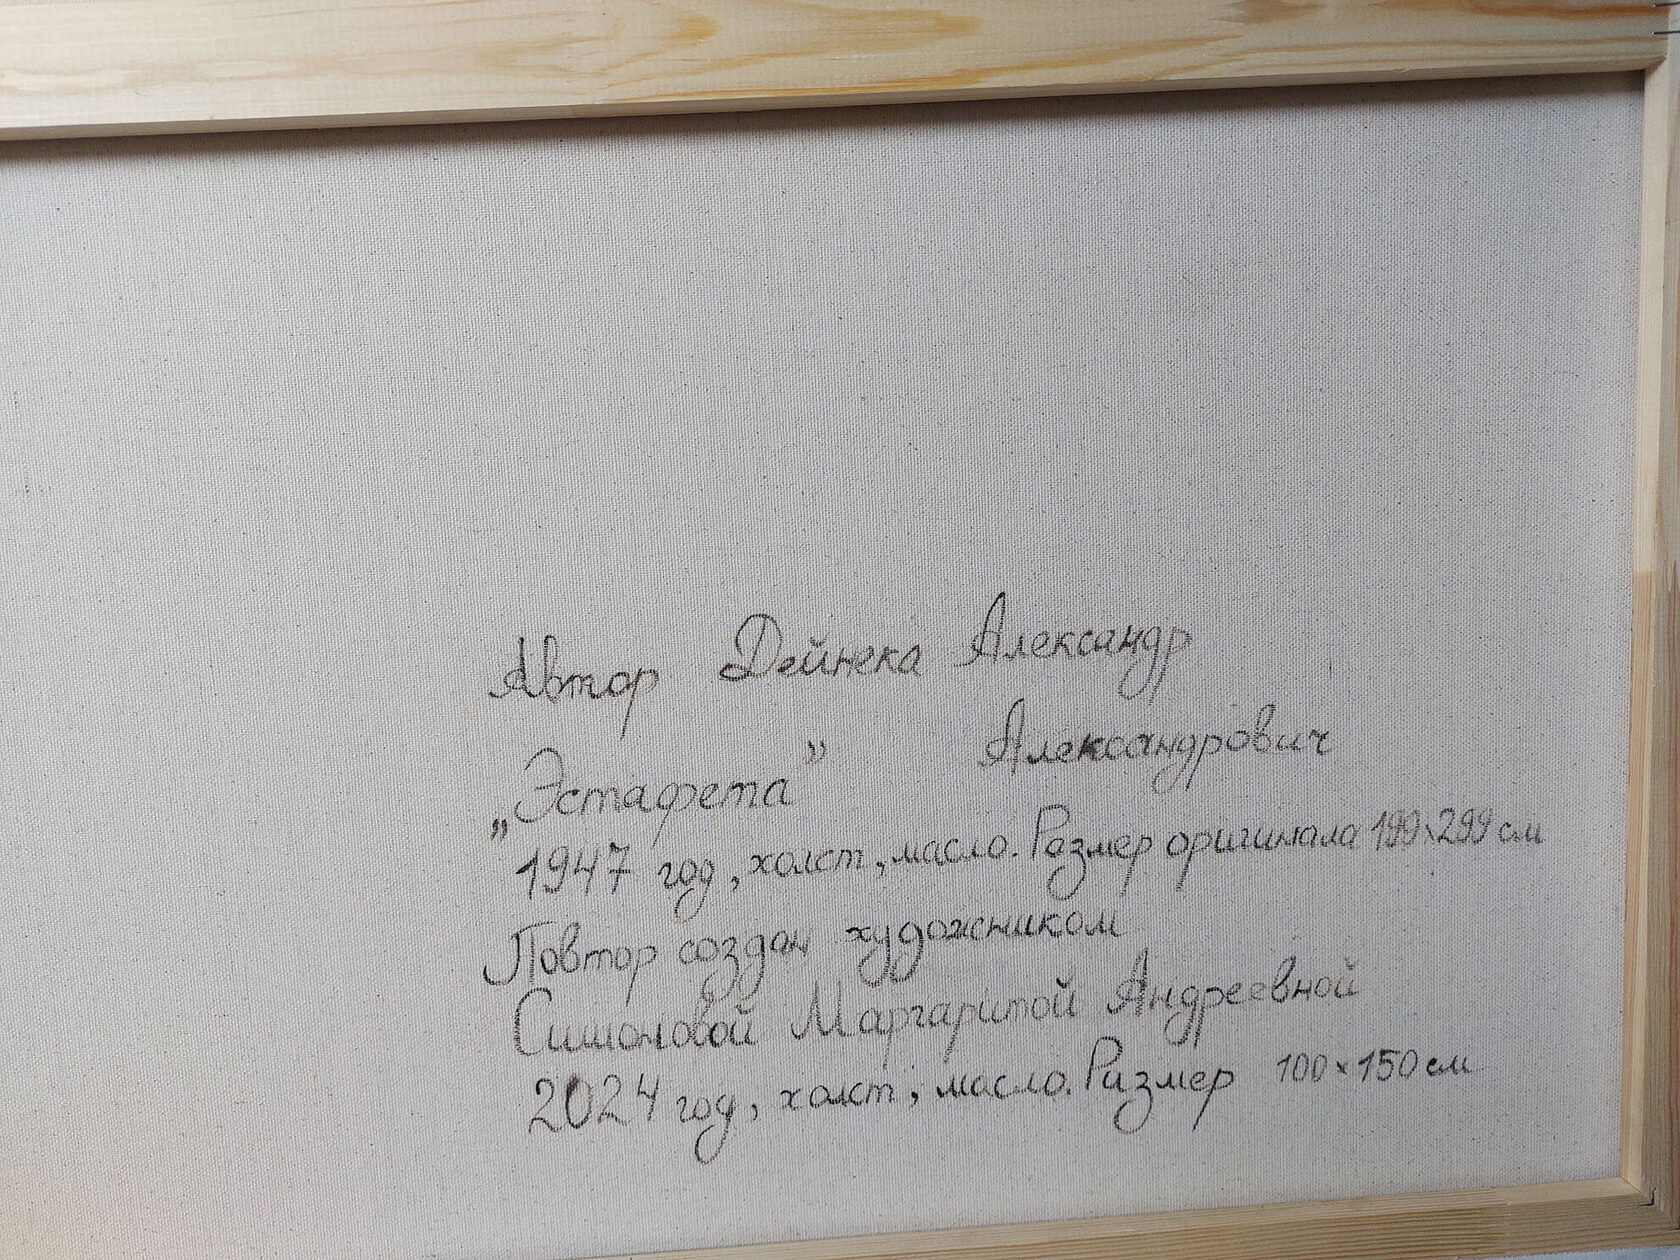 Автор Дейнека Александр
Александрович
„Эстафета”
1947 год, холст, масло. Размер оригинала 199х299 см
Повтор создан художником
Симоновой Маргаритой Андреевной
2024 год, холст, масло. Размер 100×150 см